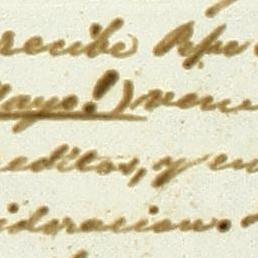 recibe Pepe
Mayo!) venc
editos, y en
idoracion.